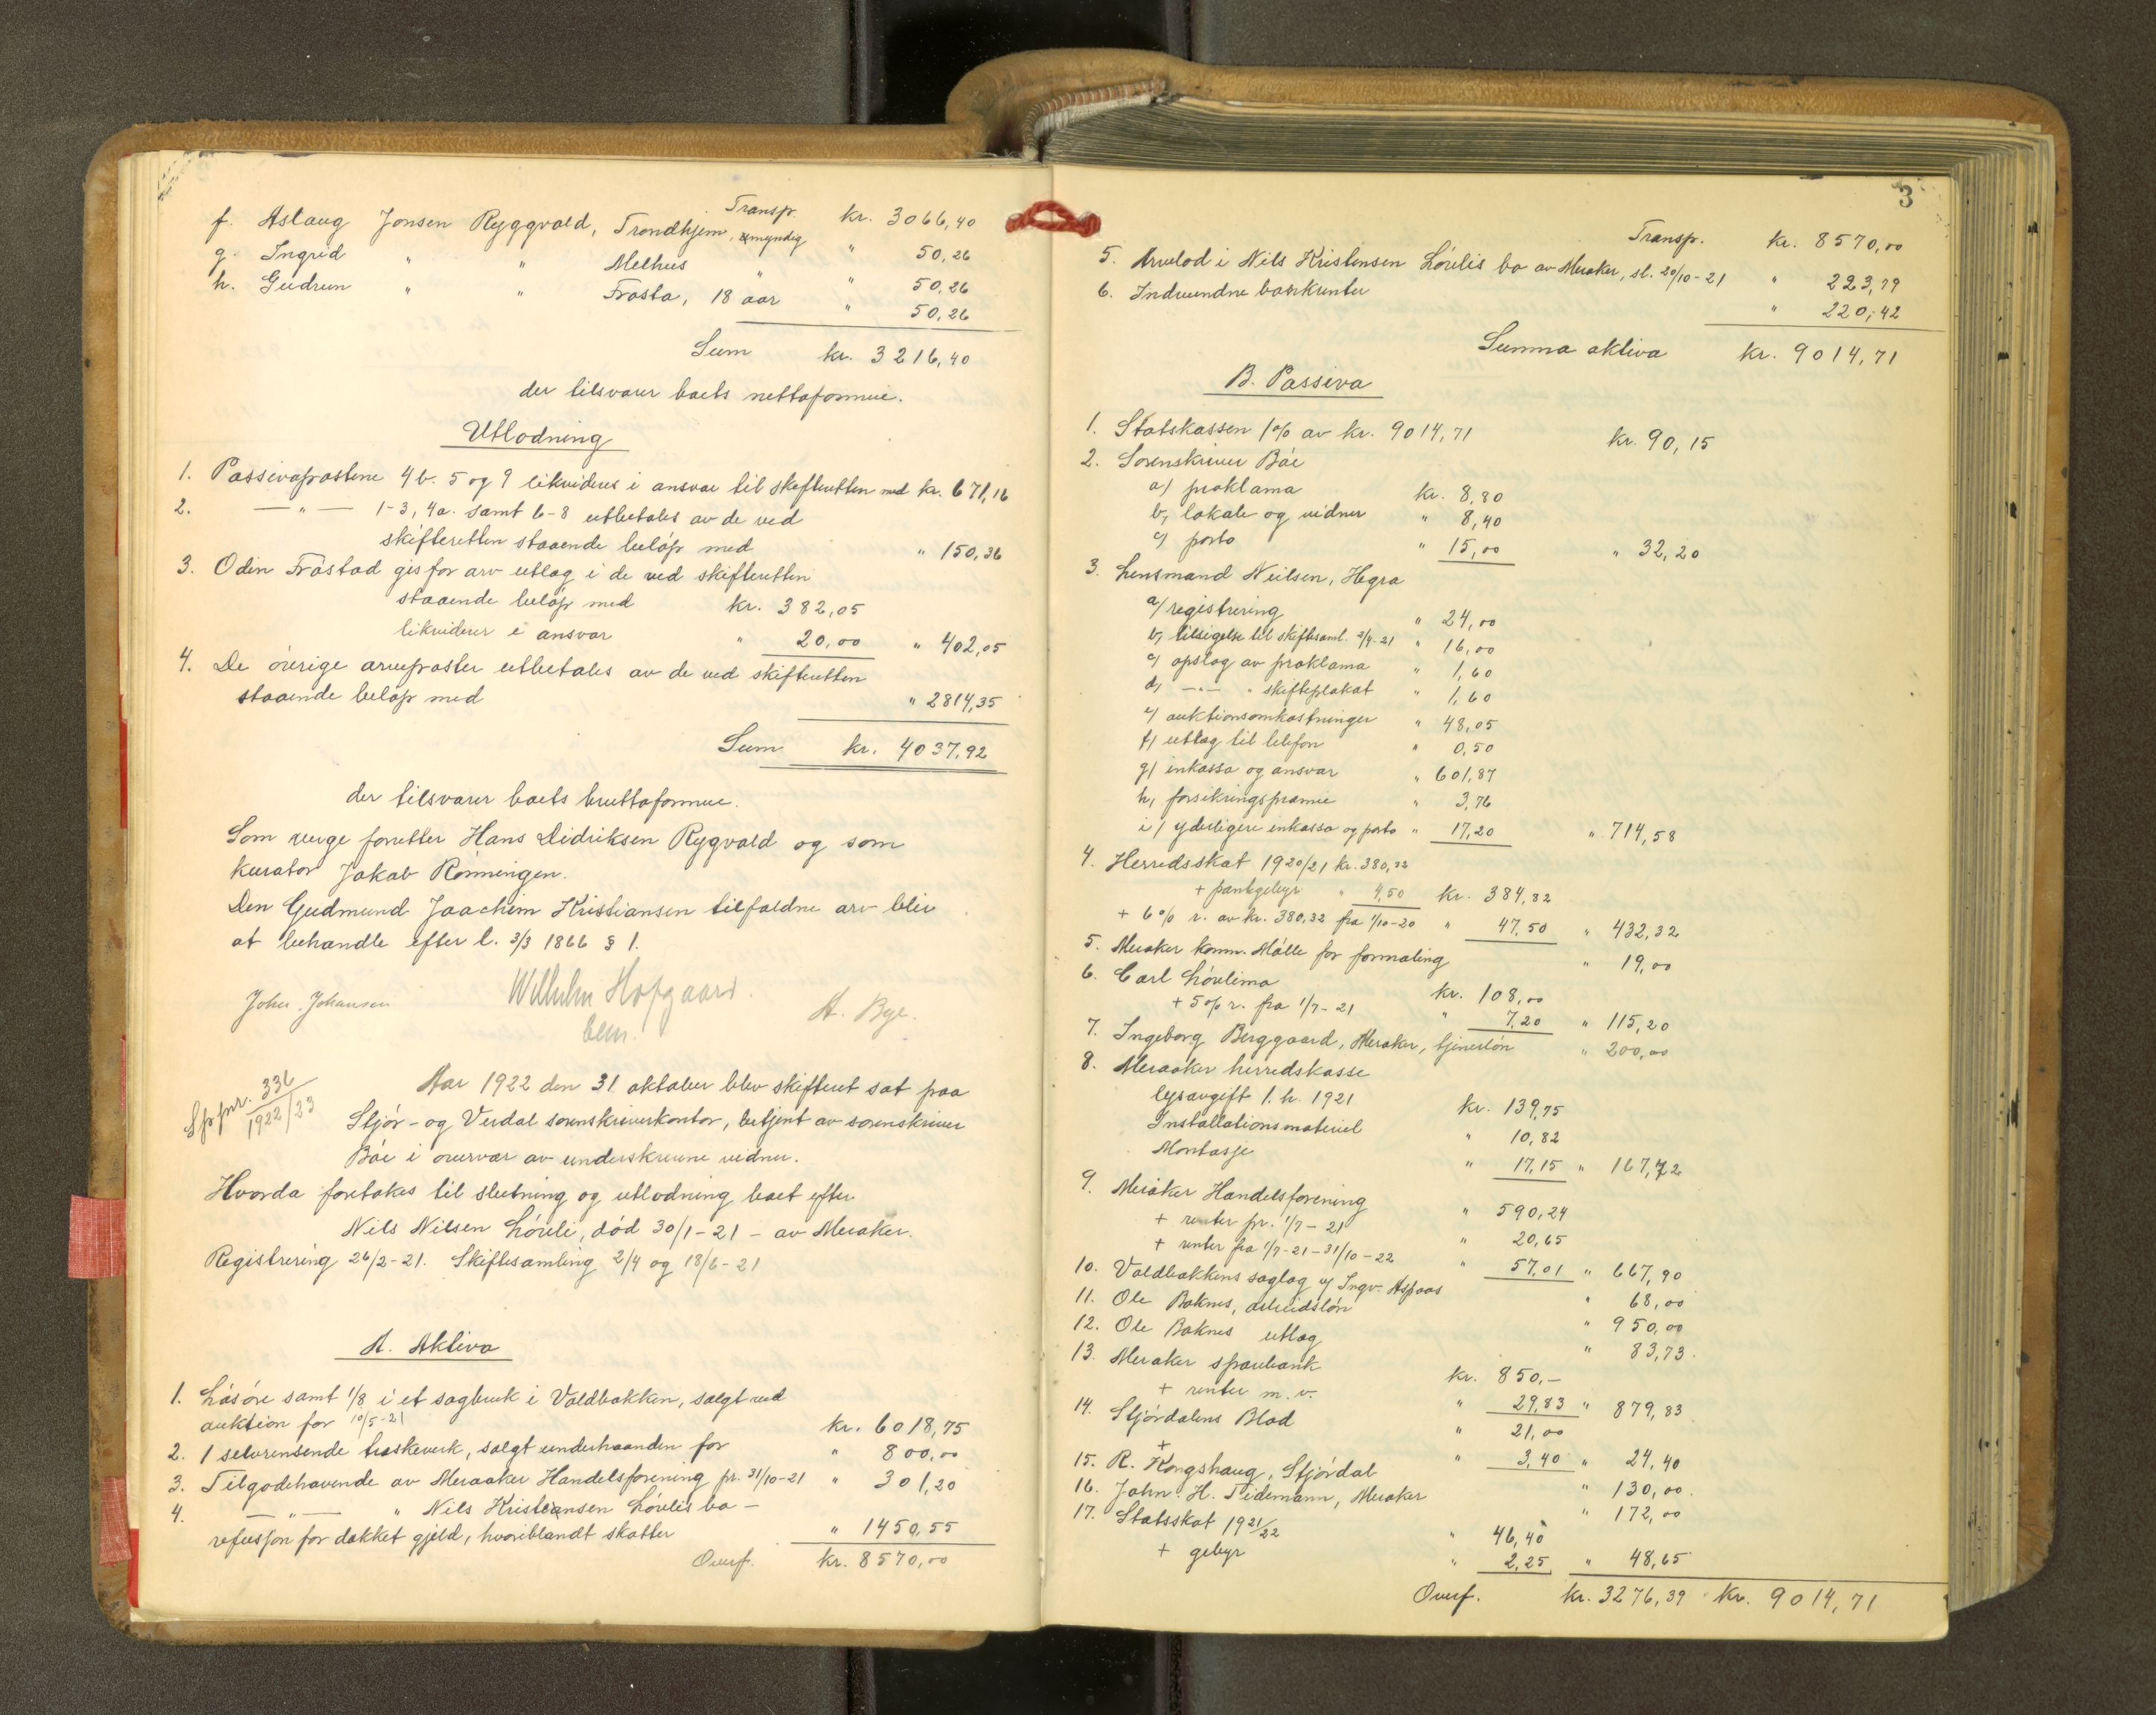 Transp. kr. 3066,40
f. Aslaug Jonsen Ryggvold, Trondhjem, umyndig " 50,26
g. Ingrid " " Melhus " " 50,26
h. Gudrun " " Frosta, 18 aar " 50,26
Sum kr. 3216,40
der tilsvarer boets nettoformue.
Utlodning
1. Passivapostene 4b. 5 og 9 likvideres i ansvar til skifteretten med kr. 671,16
2. —"— 1-3, 4a. samt 6-8 utbetales av de ved
skifteretten staaende beløp med " 150,36
3. Odin Fråstad gis for arv utlæg i de ved skifteretten
staaende beløp med kr. 382,05
likviderer i ansvar " 20,00 " 402,05
4. De øvrige arveposter utbetales av de ved skifteretten
staaende beløp med " 2814,35
Sum kr. 4037,92
der tilsvarer boets bruttoformue.
Som verge forretter Hans Didriksen Rygvold og som
kurator Jakob Rønningen.
Den Gudmund Joachim Kristiansen tilfaldne arv blir
at behandle efter l. 3/3 1866 § 1.
Johs. Johansen Wilhelm Hofgaard. A. Bye.
bem.
Sppnr. 336
1922/23
Aar 1922 den 31 oktober blev skifteret sat paa
Stjør- og Verdal sorenskriverkontor, betjent av sorenskriver
Båe i overvær av underskrevne vidner.
Hvorda foretokes til slutning og utlodning boet efter
Nils Nilsen Løvli, død 30/1-21 - av Meraker.
Registrering 26/2-21. Skiftesamling 2/4 og 18/6-21
A. Aktiva
1. Løsøre samt 1/8 i et sagbruk i Voldbakken, solgt ved
auktion for 10/5-21 kr. 6018,75
2. 1 selvrensende træskeverk, solgt underhaanden for " 800,00
3. Tilgodehavende av Meraaker Handelsforening pr. 31/10-21 " 301,20
4. —"— " Nils Kristiansen Løvlis bo -
refusjon for dækket gjeld, hvoriblandt skatter " 1450,55
Overf. kr. 8570,00
3
Transp. kr. 8570,00
5. Arvelod i Nils Kristensen Løvlis bo av Meraker, sl. 20/10-21 " 223,79
6. Indvundne bankrenter " 220,42
Summa aktiva kr. 9014,71
B. Passiva
1. Statskassen 1% av kr. 9014,71 kr. 90,15
2. Sorenskriver Båe
a) proklama kr. 8,80
b) lokale og vidner " 8,40
c) porto " 15,00 " 32,20
3. Lensmand Neilsen, Hegra
a) registrering " 24,00
b) tilsigelse til skiftesaml. 2/4-21 " 16,00
c) opslag av proklama " 1,60
d) —"— " skifteplakat " 1,60
e) auktionsomkostninger " 48,05
f) utlæg til telefon " 0,50
g) inkasso og ansvar " 601,87
h) forsikringspræmie " 3,76
i) yderligere inkasso og porto " 17,20 " 714,58
4. Herredsskat 1920/21 kr. 380,32
+ pantegebyr " 4,50 kr. 384,82
+ 6% r. av kr. 380,32 fra 1/10-20 " 47,50 " 432,32
5. Meraker komm. Mølle for formaling " 19,00
6. Carl Løvlimo kr. 108,00
+ 5% r. fra 1/7-21 " 7,20 " 115,20
7. Ingeborg Berggaard, Meraker, tjenerløn " 200,00
8. Meraaker herredskasse
lysavgift 1. h. 1921 kr. 139,75
Installationsmateriel " 10,82
Montasje " 17,15 " 167,72
9. Meraker Handelsforening " 590,24
+ renter pr. 1/7-21 " 20,65
+ renter fra 1/7-21-31/10-22 " 57,01 " 667,90
10. Voldbakkens saglag v/ Ingv. Aspaas " 68,00
11. Ole Baknes, arbeidsløn " 950,00
12. Ole Baknes utlæg " 83,73.
13. Meraker sparebank kr. 850,-
+ renter m. v. " 29,83 " 879,83
14. Stjørdalens Blad " 21,00
+ " 3,40 " 24,40
15. R. Kongshaug, Stjørdal " 130,00.
16. John. H. Tidemann, Meraker " 172,00
17. Statsskat 1921/22 " 46,40
+ gebyr " 2,25 " 48,65
Overf. kr. 3276,39 kr. 9014,71